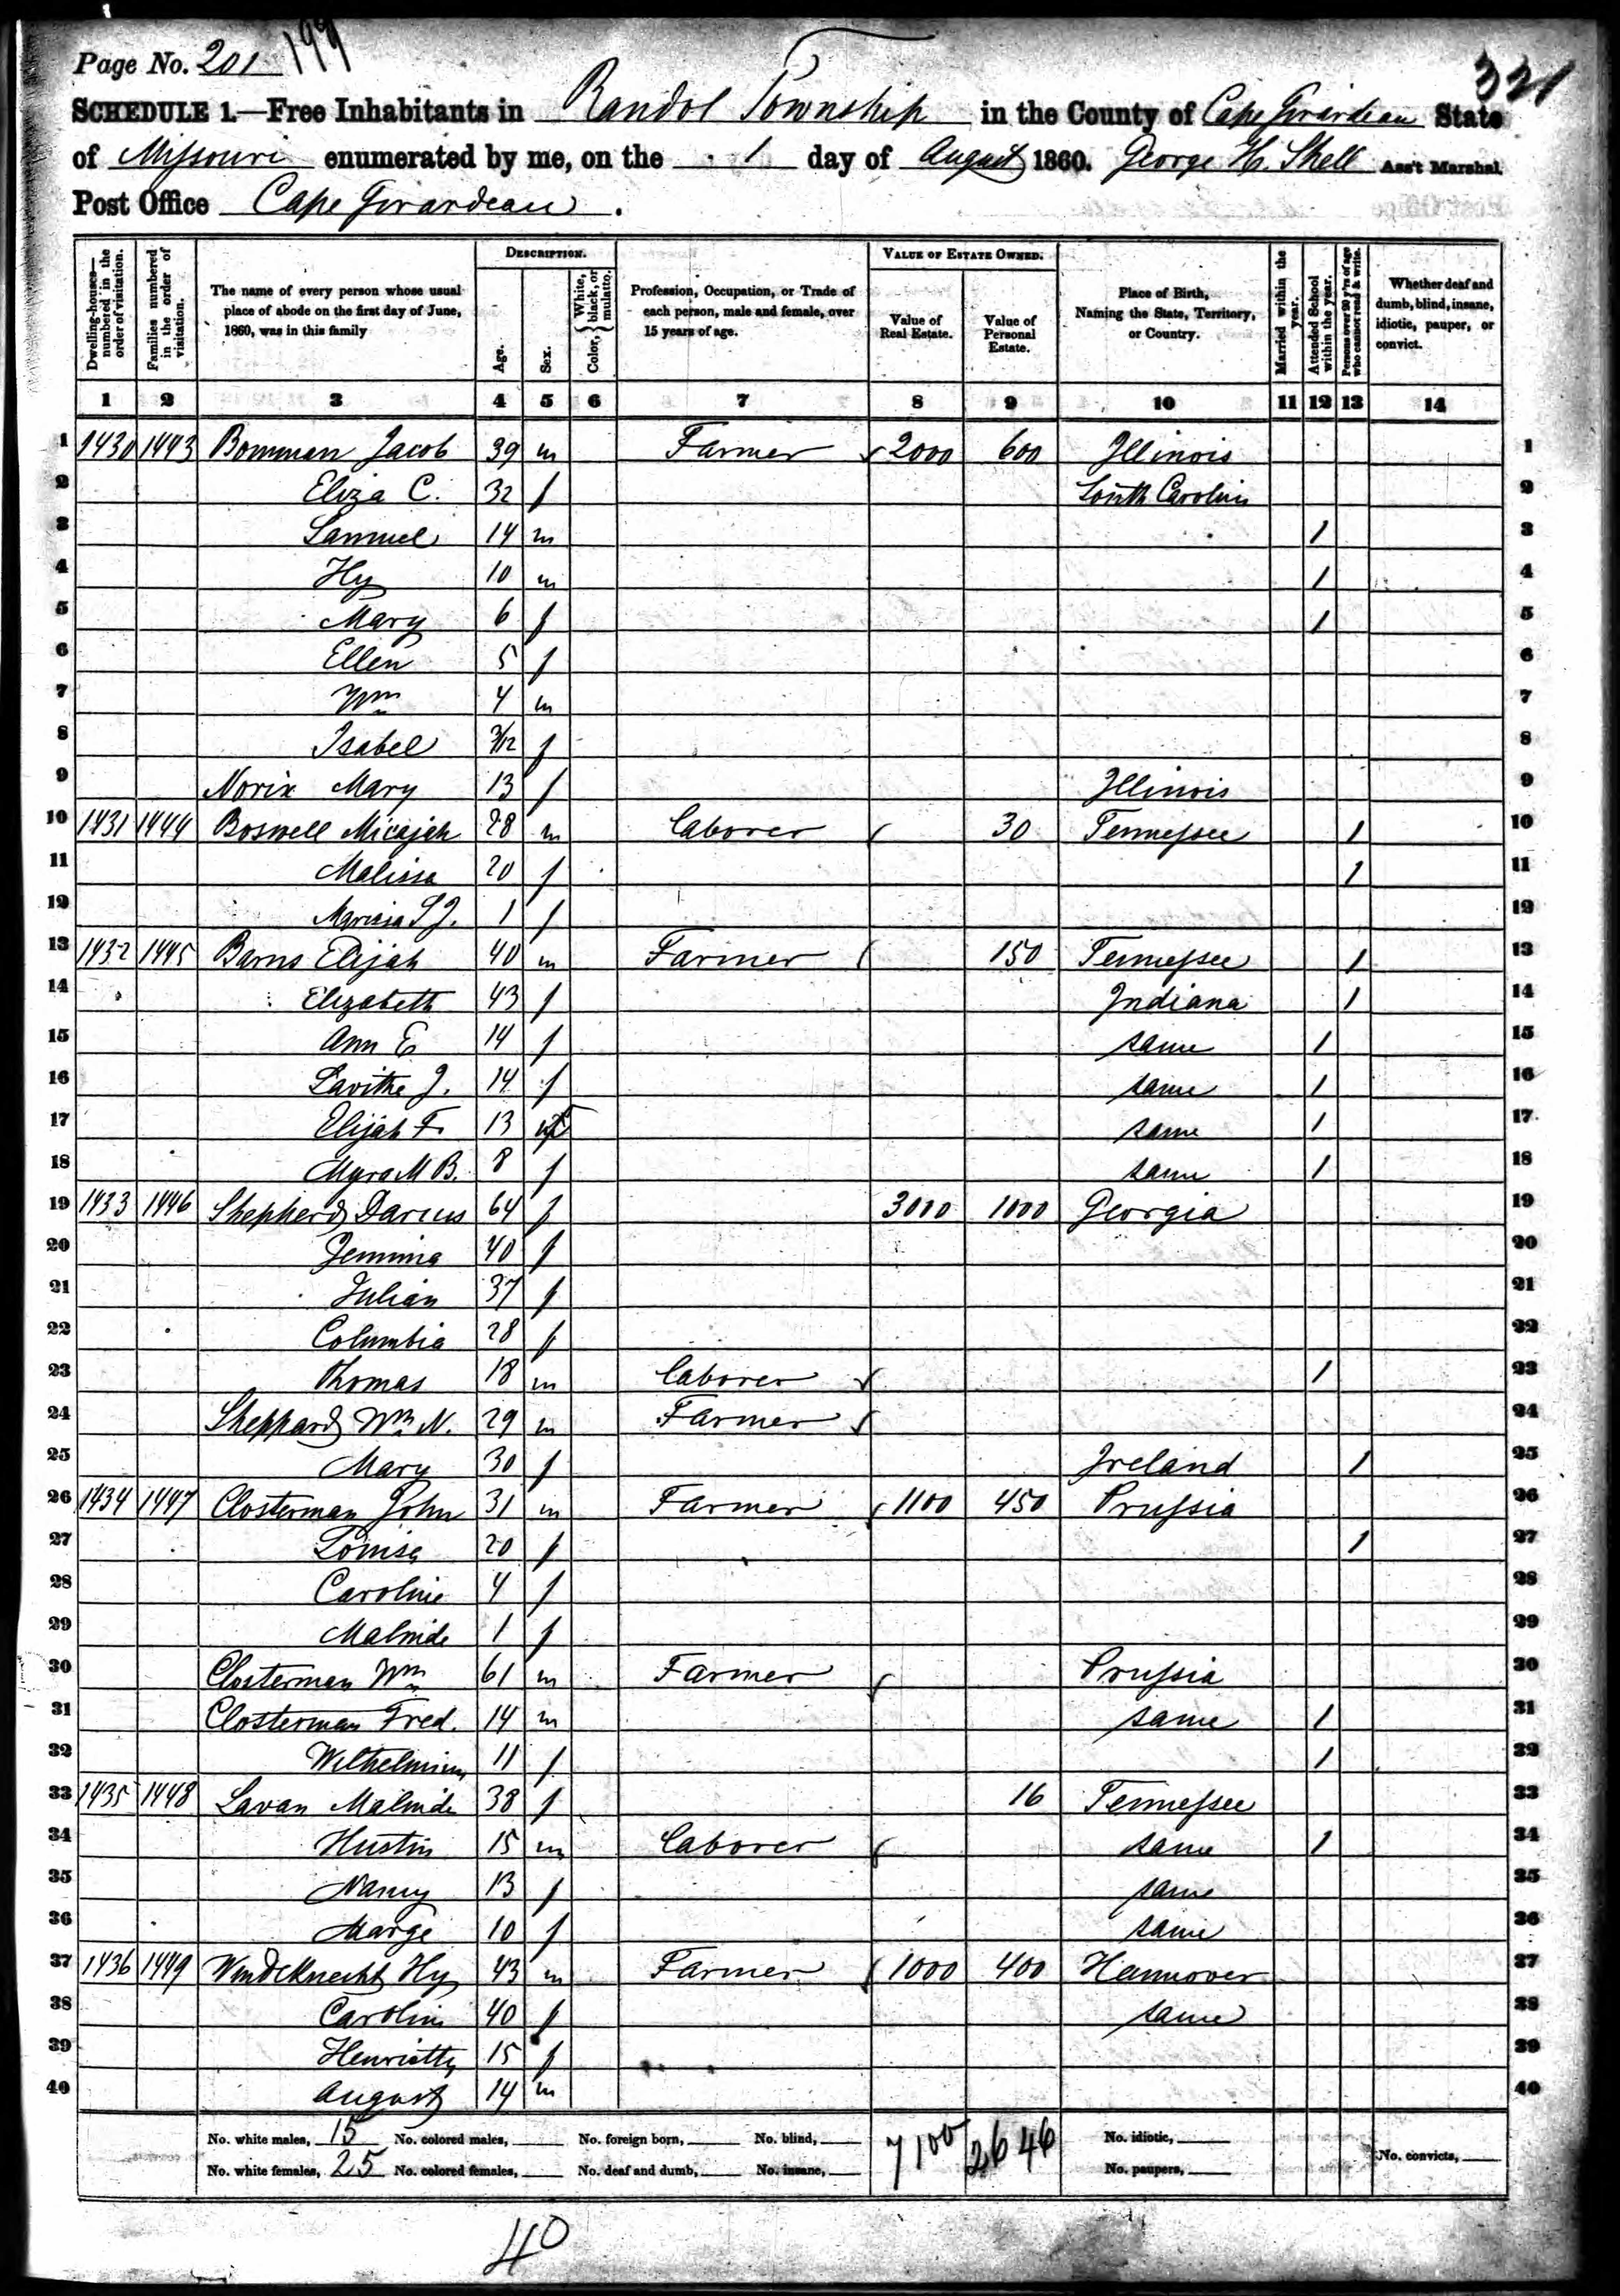 Page No. 201 199
321
SCHEDULE 1.—Free Inhabitants in Randol Township in the County of Cape Girardeau State
of Missouri enumerated by me, on the 1 day of August 1860. George H. Shell Ass't Marshal.
Post Office Cape Girardeau.
Dwelling-houses—numbered in the order of visitation.
Families numbered in the order of visitation.
The name of every person whose usual place of abode on the first day of June, 1860, was in this family
DESCRIPTION.
Age.
Sex.
Color, { White, black, or mulatto.
Profession, Occupation, or Trade of each person, male and female, over 15 years of age.
VALUE OF ESTATE OWNED.
Value of Real Estate.
Value of Personal Estate.
Place of Birth, Naming the State, Territory, or Country.
Married within the year.
Attended School within the year.
Persons over 20 y'rs of age who cannot read & write.
Whether deaf and dumb, blind, insane, idiotic, pauper, or convict.
1 2 3 4 5 6 7 8 9 10 11 12 13 14
1 1430 1443 Bowman Jacob 39 m Farmer 2000 600 Illinois 1
2 Eliza C. 32 f South Carolina 2
3 Samuel 14 m 1 3
4 Hy 10 m 1 4
5 Mary 6 f 1 5
6 Ellen 5 f 6
7 Wm 4 m 7
8 Isabel 3/12 f 8
9 Norix Mary 13 f Illinois 9
10 1431 1444 Boswell Micajah 28 m Laborer 30 Tennessee 1 10
11 Malissa 20 f 1 11
12 S J. 1 f 12
13 1432 1445 Barns Elijah 40 m Farmer 150 Tennessee 1 13
14 Elizabeth 43 f Indiana 1 14
15 Ann E 14 f same 1 15
16 Lavitha J. 14 f same 1 16
17 Elijah F. 13 same 1 17
18 Myra M B. 8 f same 1 18
19 1433 1446 Shepherd Darcus 64 f 3000 1000 Georgia 19
20 Jemima 40 f 20
21 Julian 37 f 21
22 Columbia 28 f 22
23 Thomas 18 m Laborer 1 23
24 Sheppard Wm N. 29 m Farmer 24
25 Mary 30 f Ireland 1 25
26 1434 1447 Closterman John 31 m Farmer 1100 450 Prussia 26
27 Louisa 20 f 1 27
28 Caroline 4 f 28
29 Malinda 1 f 29
30 Closterman Wm 61 m Farmer Prussia 30
31 Closterman Fred. 14 m same 1 31
32 Wilhelmina 11 f 1 32
33 1435 1448 Lavan Malinda 38 f 16 Tennessee 33
34 Hustin 15 m Laborer same 1 34
35 Nancy 13 f same 35
36 Marge 10 f same 36
37 1436 1449 Windeknecht Hy 43 m Farmer 1000 400 Hannover 37
38 Carolin 40 f same 38
39 Henrietta 15 f 39
40 August 14 m 40
No. white males, 15 No. colored males, No. foreign born, No. blind, 7100 2646 No. idiotic,
No. white females, 25 No. colored females, No. deaf and dumb, No. insane, No. paupers, No. convicts,
40